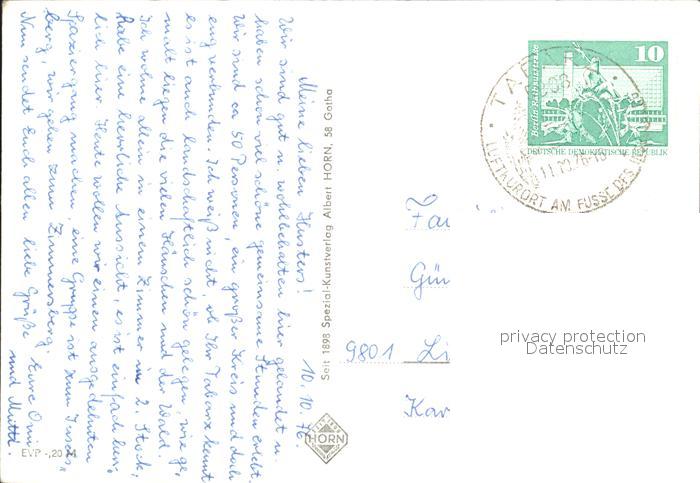 Meine lieben Husters! 10.10.76
Wir sind gut u. wohlbehalten hier gelandet u.
haben schon viel schöne gemeinsame Stunden erlebt.
Wir sind ca 50 Personen, ein großer Kreis und doch
eng verbunden. Ich weiß nicht, ob Ihr Tabarz kennt
es ist auch landschaftlich schön gelegen, wie ge-
malt liegen die vielen Häuschen und der Wald.
Ich wohne allein in einem Zimmer im 2. Stock,
habe eine herrliche Aussicht, es ist einfach herr-
lich hier. Heute wollen wir einen ausgedehnten
Spaziergang machen, eine Gruppe ist zum Insels-
berg, wir gehen zum Zimmersberg.
Nun sendet Euch allen liebe Grüße Eure Omi
und Mutti.
EVP -,20 M
Seit 1898 Spezial-Kunstverlag Albert HORN, 58 Gotha
HORN
10
Berlin, Rathausstraße
DEUTSCHE DEMOKRATISCHE REPUBLIK
TABARZ
11.10.76
LUFTKURORT AM FUSSE DES
Fa
Gün
9801 Li
Kar
privacy protection
Datenschutz